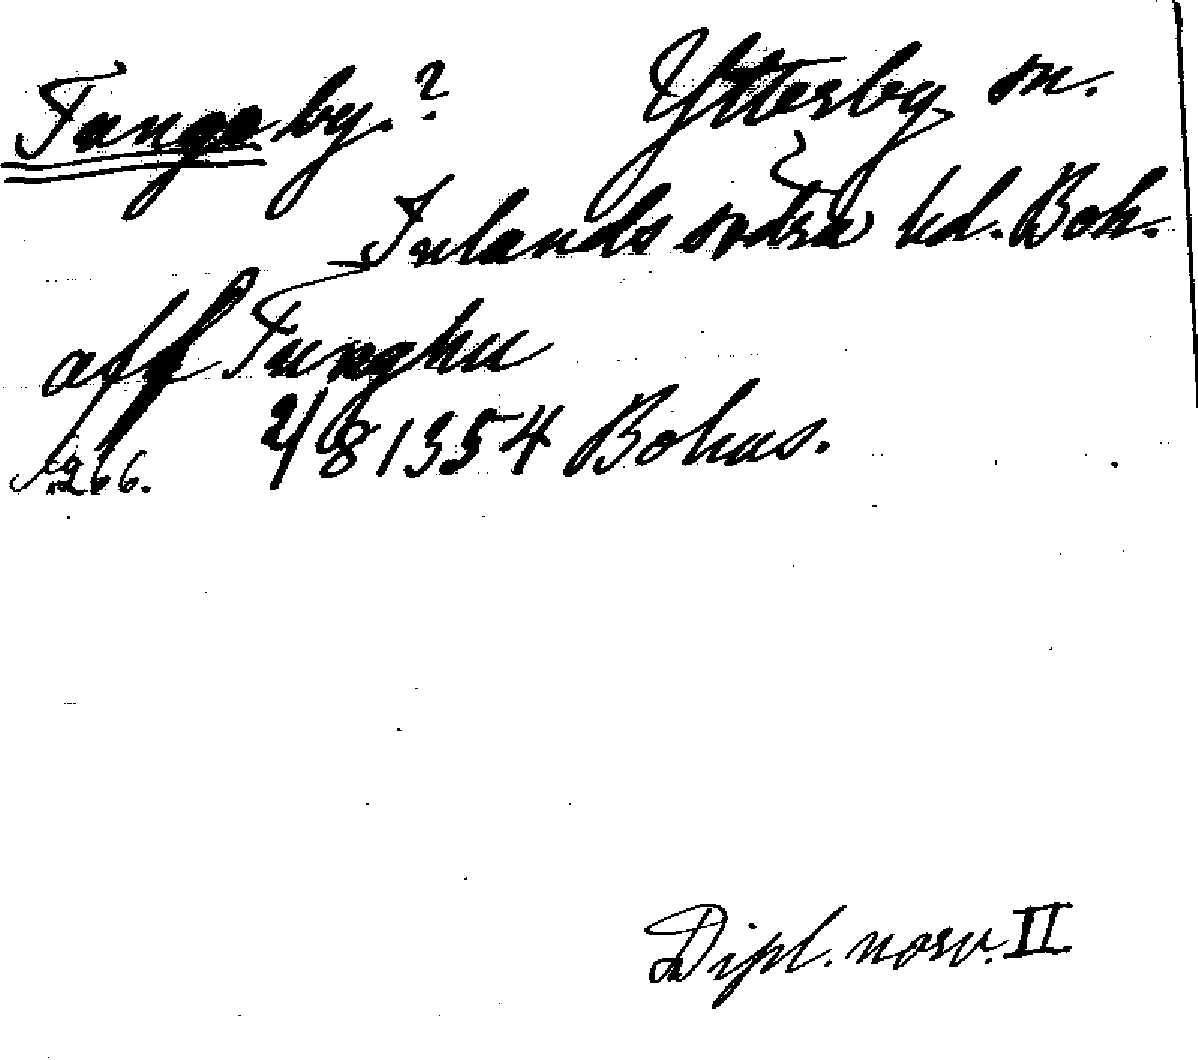 Tunge by.? Ytterby sn.
Inlands södra hd. Boh.
aff Tunghu
No 266. 2/8 1354 Bohus.
Dipl. norv. II